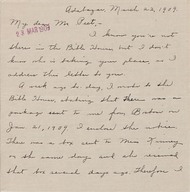 Adabazar, March 23, 1909.
28 MAR 1909
My dear Mr Peet,-
I know you're not
there in the Bible House but I don't
know who is taking your place, so I
address this letter to you.
A week ago to-day, I wrote to the
Bible House, stating that there was a
package sent to me from Boston on
Jan 21, 1909. I enclose the notice.
There was a box sent to Miss Kinney
on the same day and she received
that several days ago. Therefore I